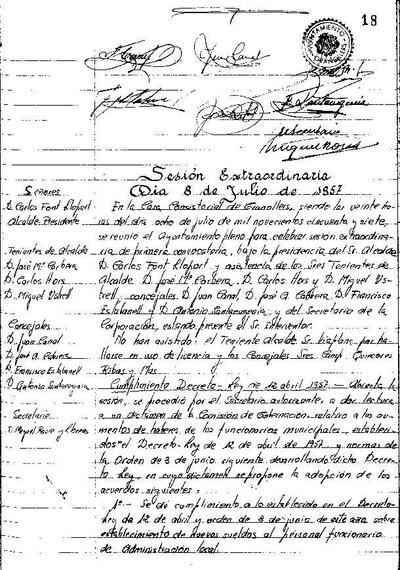 18
AYUNTAMIENTO
GRANOLLERS
Sesión Extraordinaria
Día 8 de Julio de 1957
Señores
D. Carlos Font Llopart
Alcalde Presidente
Tenientes de Alcalde
D. José Mª Corbera
D. Carlos Hors
D. Miguel Ustrell
Concejales
D. Juan Canal
D. José A. Cabrera
D. Francisco Estabanell
D. Antonio Santaeugenia
Secretario
D. Miguel
En la Casa Consistorial de Granollers, siendo las veinte ho-
ras del día ocho de julio de mil novecientos cincuenta y siete,
se reunió el Ayuntamiento pleno para celebrar sesión extraordina-
ria de primera convocatoria, bajo la presidencia del Sr. Alcalde
D. Carlos Font Llopart y asistencia de los Sres Tenientes de
Alcalde D. José Mª Corbera, D. Carlos Hors y D. Miguel Us-
trell, concejales D. Juan Canal, D. José A. Cabrera, D. Francisco
Estabanell y D. Antonio Santaeugenia, y del Secretario de la
Corporación, estando presente el Sr. Interventor.
No han asistido: el Teniente Alcalde Sr. por ha-
llarse en uso de licencia y los Concejales Sres. Comp.
Ribas y Mas.
Cumplimiento Decreto-Ley de 12 abril 1957. - Abierta la
sesión, se procedió por el Secretario autorizante, a dar lectura
a un dictamen de la Comisión de Gobernación relativo a los au-
mentos de haberes de los funcionarios municipales, estableci-
dos el Decreto-Ley de 12 de abril de 1957 y normas de
la Orden de 3 de junio siguiente desarrollando dicho Decre-
to Ley, en cuyo dictamen se propone la adopción de los
acuerdos siguientes:
1º - Se dé cumplimiento a lo establecido en el Decreto-
Ley de 12 de abril y orden de 3 de junio de este año sobre
establecimiento de nuevos sueldos al personal funcionario
de Administración local.